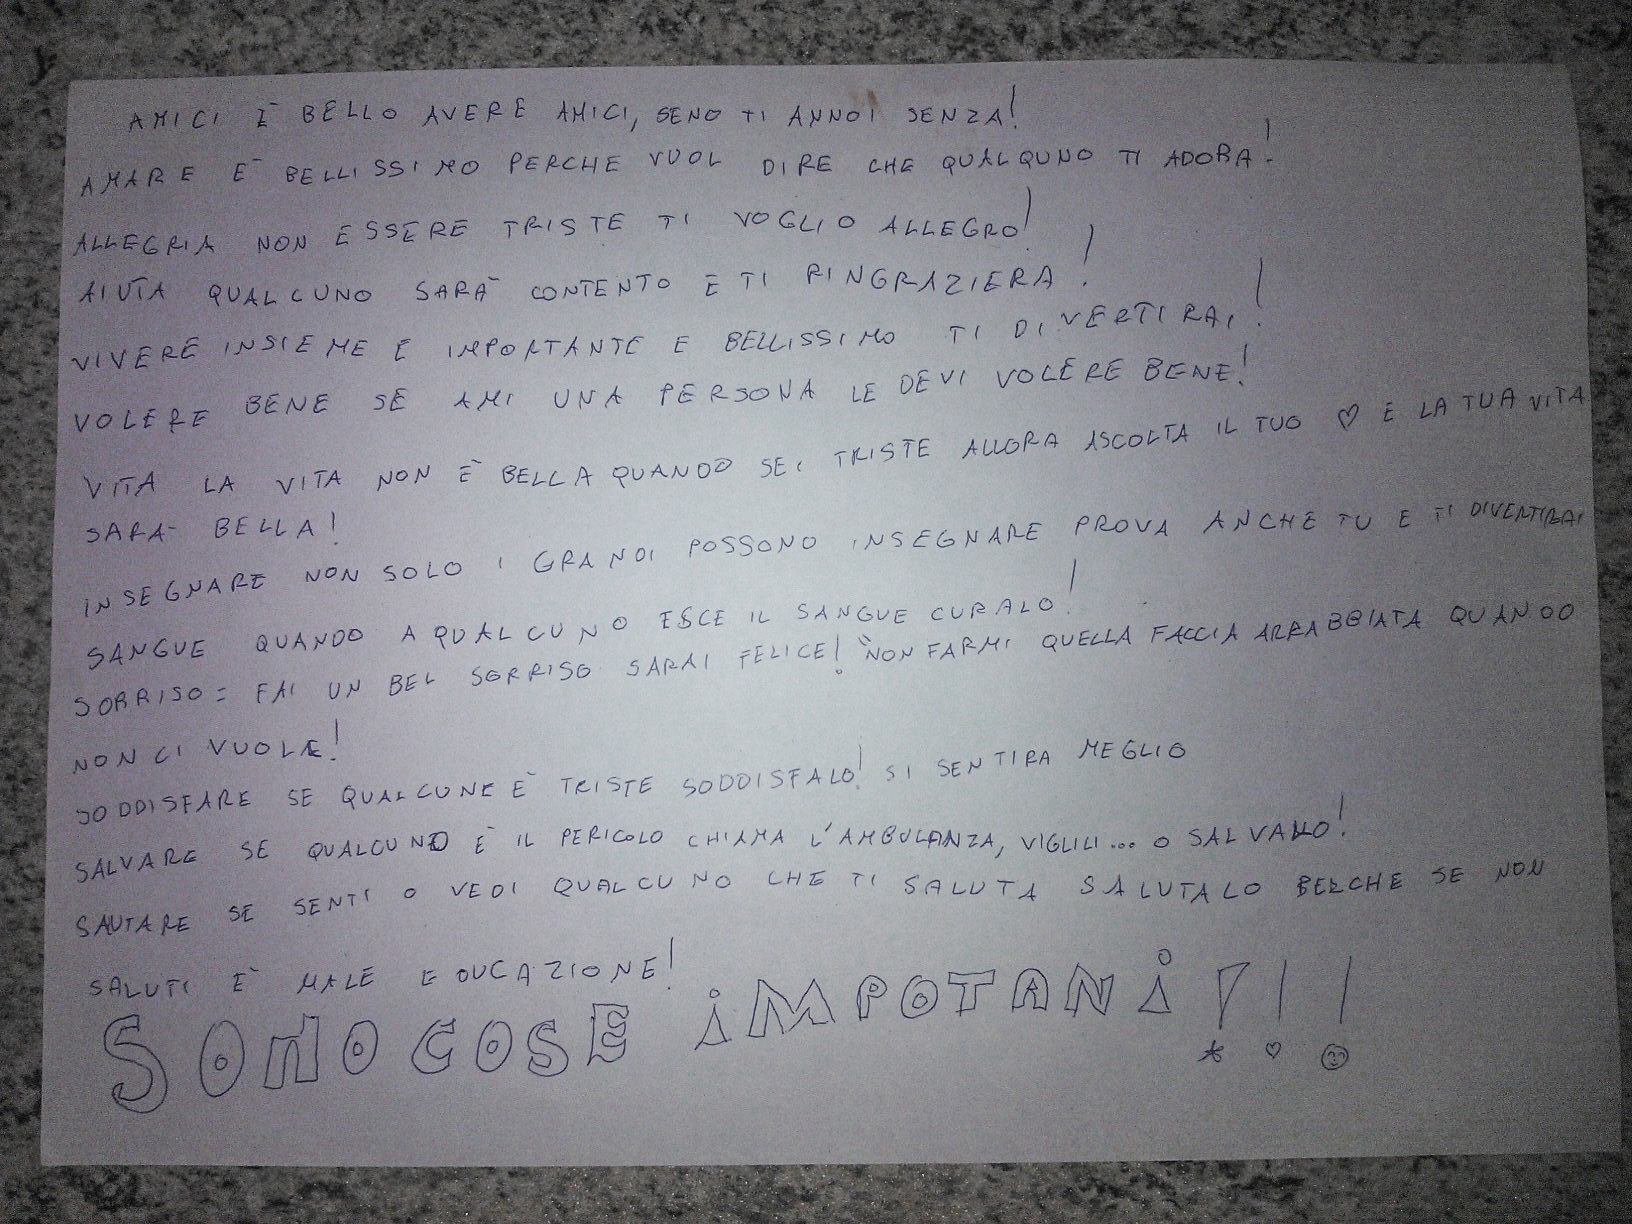 AMICI È BELLO AVERE AMICI, SENO TI ANNOI SENZA!
AMARE E' BELLISSIMO PERCHE VUOL DIRE CHE QUALQUNO TI ADORA!
ALLEGRIA NON ESSERE TRISTE TI VOGLIO ALLEGRO!
AIUTA QUALCUNO SARA' CONTENTO E TI RINGRAZIERA!
VIVERE INSIEME E IMPORTANTE E BELLISSIMO TI DIVERTIRAI!
VOLERE BENE SE AMI UNA PERSONA LE DEVI VOLERE BENE!
VITA LA VITA NON È BELLA QUANDO SEI TRISTE ALLORA ASCOLTA IL TUO ♡ E LA TUA VITA
SARA' BELLA!
INSEGNARE NON SOLO I GRANDI POSSONO INSEGNARE PROVA ANCHE TU E TI DIVERTIRAI
SANGUE QUANDO A QUALCUNO ESCE IL SANGUE CURALO!
SORRISO = FAI UN BEL SORRISO SARAI FELICE! NON FARMI QUELLA FACCIA ARRABBIATA QUANDO
NON CI VUOLE!
SODDISFARE SE QUALCUNE È TRISTE SODDISFALO! SI SENTIRA MEGLIO
SALVARE SE QUALCUNO È IL PERICOLO CHIAMA L'AMBULANZA, VIGLILI... O SALVALLO!
SAUTARE SE SENTI O VEDI QUALCUNO CHE TI SALUTA SALUTALO PERCHE SE NON
SALUTI È MALE EDUCAZIONE!
SONO COSE iMPOTANi!!!